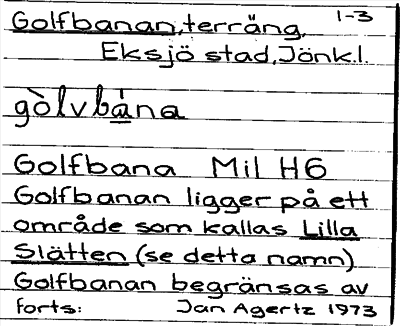 Golfbanan, terräng. 1-3
Eksjö stad, Jönk.l.
gòlvbána
Golfbana Mil H6
Golfbanan ligger på ett
område som kallas Lilla
Slätten (se detta namn)
Golfbanan begränsas av
forts: Jan Agertz 1973